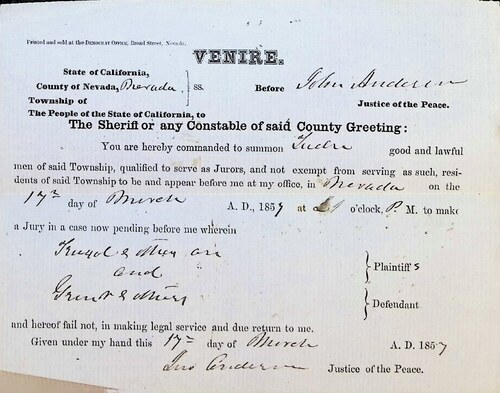 Printed and sold at the DEMOCRAT OFFICE, Broad Street, Nevada.
VENIRE.
State of California,
County of Nevada, Nevada } ss. Before John Anderson
Township of Justice of the Peace.
The People of the State of California, to
The Sheriff or any Constable of said County Greeting:
You are hereby commanded to summon good and lawful
men of said Township, qualified to serve as Jurors, and not exempt from serving as such, resi-
dents of said Township to be and appear before me at my office, in Nevada on the
17th day of March A. D., 1857 at o'clock, P. M. to make
a Jury in a case now pending before me wherein
& others
and } Plaintiffs
Grent & others } Defendant
and hereof fail not, in making legal service and due return to me.
Given under my hand this 17th day of March A. D. 1857
Jno Anderson Justice of the Peace.